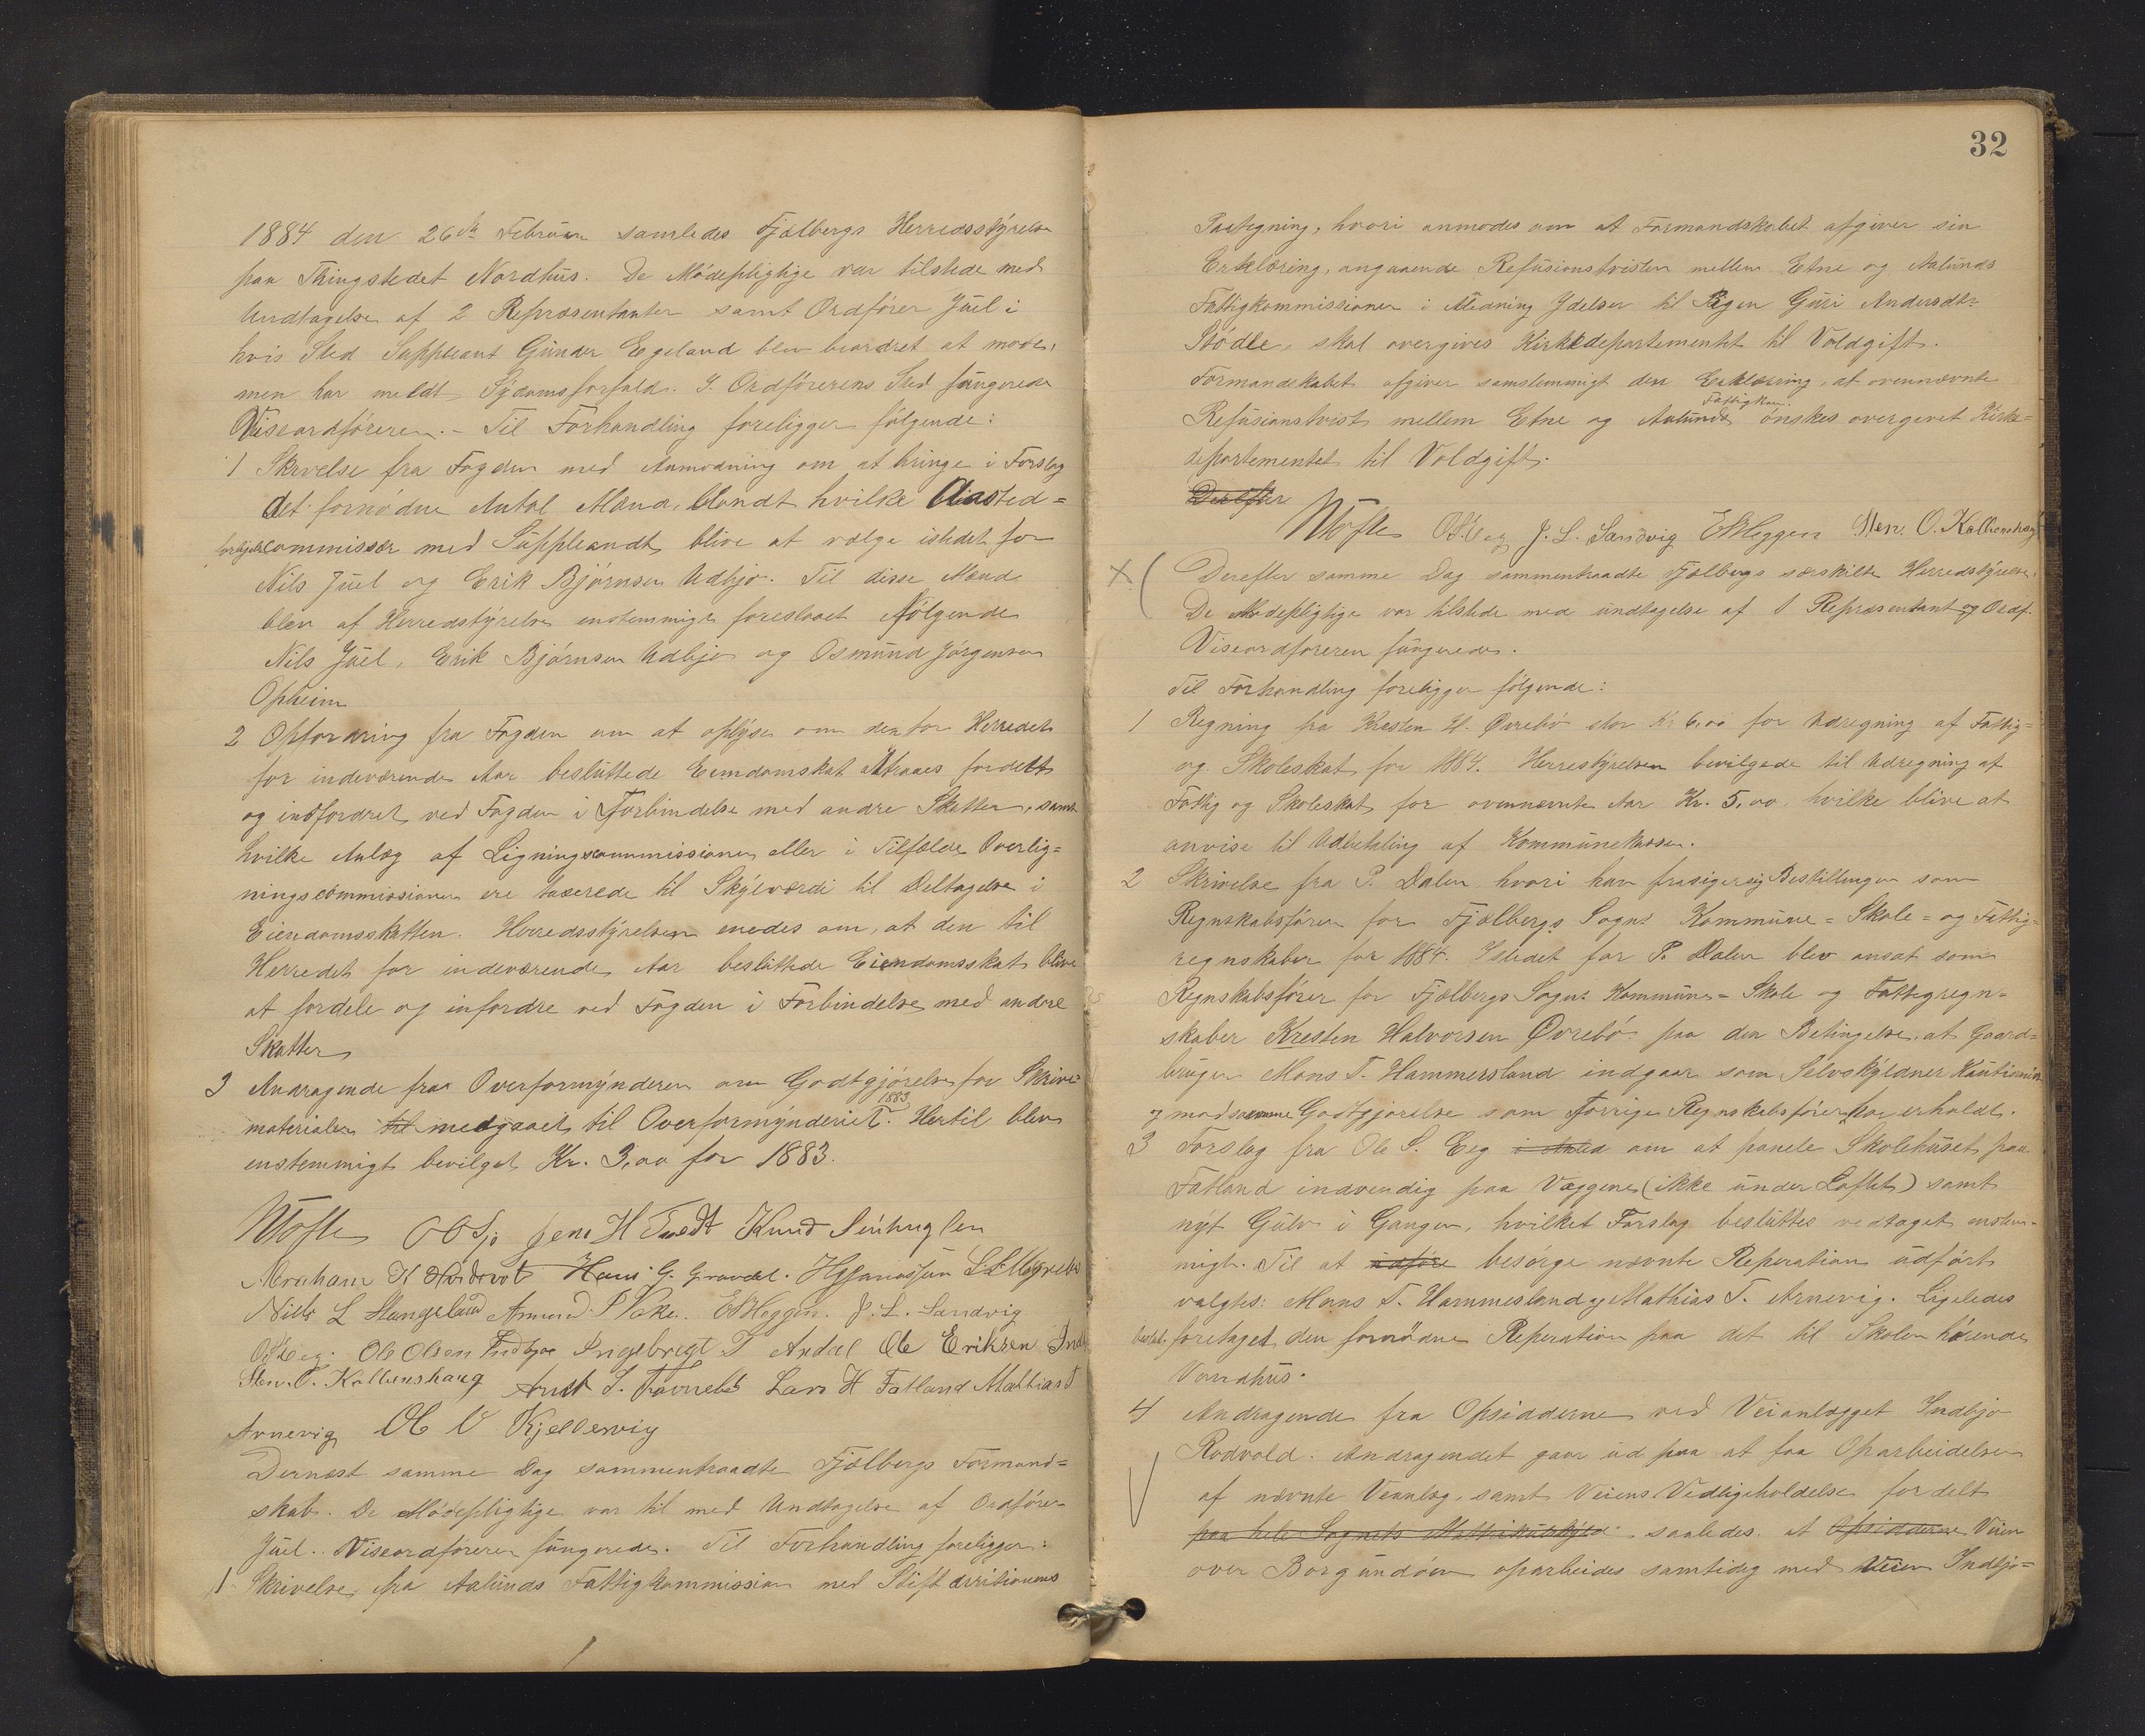 1884 den 26de Februar samledes Fjælbergs Herredsstyrelse
paa Thingstedet Nordhus. De Mødepligtige var tilstede med
Undtagelse af 2 Repræsentanter samt Ordfører Juel i
hvis Sted Suppleant Gunder Egeland blev beordret at møde,
men har meldt Sydomsforfald. I Ordførerens Sted fungerede
Viseordføreren. - Til Forhandling foreligger følgende:
1 Skrivelse fra Fogden med Anmodning om at bringe i Forslag
det fornødne Antal Mænd, blandt hvilke Aasted=
commissær med Suppleandt blive at vælge istedet for
Nils Juel og Erik Bjørnsen Udbjo. Til disse Mænd
blev af Herredstyrelse enstemmigt foreslaaet følgende
Nils Juel, Erik Bjørnsen Udbjo og Osmund Jørgensen
Opheim
2 Opfordring fra Fogden om at oplyse om den for Herredet
for indeværende Aar besluttede Eiendomskat attraaes fordelt
og indfordret ved Fogden i Forbindelse med andre Skatter, samt
hvilke Anlæg af Ligningscommissionen eller i Tilfælde Overlig=
ningscommissionen ere taxerede til Skyldværdi til Deltagelse i
Eiendomsskatten. Herredsstyrelsen enedes om, at den til
Herredet for indeværende Aar besluttede Eiendomsskat blive
at fordele og infordre ved Fogden i Forbindelse med andre
Skatter
3 Andragende fra Overformynderen om Godtgjørelse for Skrive=
1883
materialer til medgaaet til Overformynderiet. Hertil blev
enstemmigt bevilget Kr. 3,00 for 1883.
Tofte O O Sjo Jens H Tvedt Knud
Abraham K Hans G. Gravdal.
Niels L Stangeland Amund EBHeggen. J. L. Sandvig
Ole Olsen Indbjoe Ingebregt T Axdal Ole Eriksen
Sten. O. Kallenshaug Lars H Fatland Mathias T
Arnevig Ole V Kjellesvig
Dernæst samme Dag sammentraadte Fjælbergs Formand=
skab. De Mødepligtige var til med Undtagelse af Ordfører
Juel. Viseordføreren fungerede. Til Forhandling foreligger:
1 Skrivelse fra Aalunds Fattigkommission med Stiftdiritionens
32
Paategning, hvori anmodes om at Formandskabet afgiver sin
Erklæring, angaaende Refusionstvisten mellem Etne og Aalunds
Fattigkommissioner i Anledning Ydelser til Pigen Guri Andersdtr
Stødle, skal overgives Kirkedepartementet til Voldgift.
Formandskabet afgiver samstemmigt den Erklæring, at ovennævnte
Fattigkom.
Refusionstvist mellem Etne og Aalunds ønskes overgevet Kirke=
departementet til Voldgift.
Derefter
Tofte J. L. Sandvig EBHeggen Sten. O. Kallenshaug
Derefter samme Dag sammentraadte Fjælbergs særskilte Herredstyrelse.
De Mødepligtige var tilstede med undtagelse af 1 Repræsentant og Ordf.
Viseordføreren fungerede.
Til Forhandling foreligger følgende:
1 Regning fra Kresten H. Øvrebø stor Kr 6,00 for Udregning af Fattig=
og Skoleskat for 1884. Herrestyrelsen bevilgede til Udregning af
Fattig og Skoleskat for ovennævnte Aar Kr. 5,00, hvilke blive at
anvise til Udbetaling af Kommunekassen.
2 Skrivelse fra P. Dalen hvori han frasiger sig Bestillingen som
Regnskabsfører for Fjælbergs Sogns Kommune= Skole= og Fattig=
regnskaber for 1884. Istedet for P. Dalen blev ansat som
Regnskabsfører for Fjælbergs Sogns Kommune= Skole og Fattigregn=
skaber Kresten Halvorsen Øvrebø paa den Betingelse, at Gaard=
bruger Mons T. Hammersland indgaar som Selvskyldner Kautionist
og mod samme Godtgjørelse som forrige Regnskabsfører har erholdt.
3 Forslag fra Ole S. Eeg om at panele Skolehuset paa
Fatland indvendig paa Væggene (ikke under Loftet) samt
nyt Gulv i Gangen, hvilket Forslag besluttes vedtaget enstem=
migt. Til at udføre besørge nævnte Reperation udført
valgtes: Mons T. Hammesland og Mathias T. Arnevig. Ligeledes
foretaget den fornødne Reperation paa det til Skolen hørende
Vandhus.
4 Andragende fra Opsidderne ved Veianlægget Indbjo
Rødvold. Andragendet gaar ud paa at faa Oparbeidelsen
af nævnte Veianlæg, samt Veiens Vedligeholdelse fordelt
paa hele Sognets Matrikulskyld saaledes at Opsidderne Veien
over Borgundøen oparbeides samtidig med Veien Indbjo=